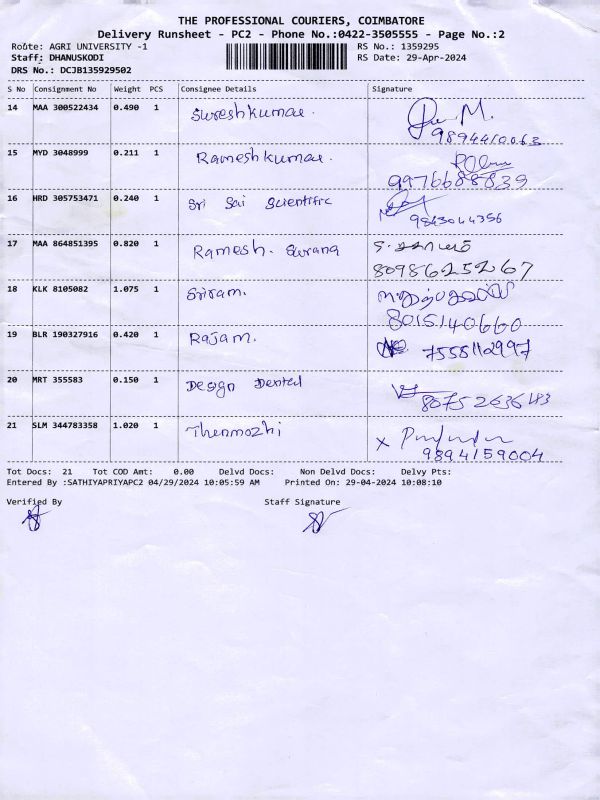 THE PROFESSIONAL COURIERS, COIMBATORE
Delivery Runsheet - PC2 - Phone No.:0422-3505555 - Page No.:2
Route: AGRI UNIVERSITY -1 RS No.: 1359295
Staff: DHANUSKODI RS Date: 29-Apr-2024
DRS No.: DCJB135929502
S No Consignment No Weight PCS Consignee Details Signature
14 MAA 300522434 0.490 1 Sureshkumar.
15 MYD 3048999 0.211 1 Rameshkumar.
9976688839
16 HRD 305753471 0.240 1 Sri Sai Scientific
9843044356
17 MAA 864851395 0.820 1 Ramesh. Surana
8098625267
18 KLK 8105082 1.075 1 Sriram.
8015140660
19 BLR 190327916 0.420 1 Rajam. 7558112997
20 MRT 355583 0.150 1 Design Dented
21 SLM 344783358 1.020 1 Thenmozhi
9894159004
Tot Docs: 21 Tot COD Amt: 0.00 Delvd Docs: Non Delvd Docs: Delvy Pts:
Entered By :SATHIYAPRIYAPC2 04/29/2024 10:05:59 AM Printed On: 29-04-2024 10:08:10
Verified By Staff Signature